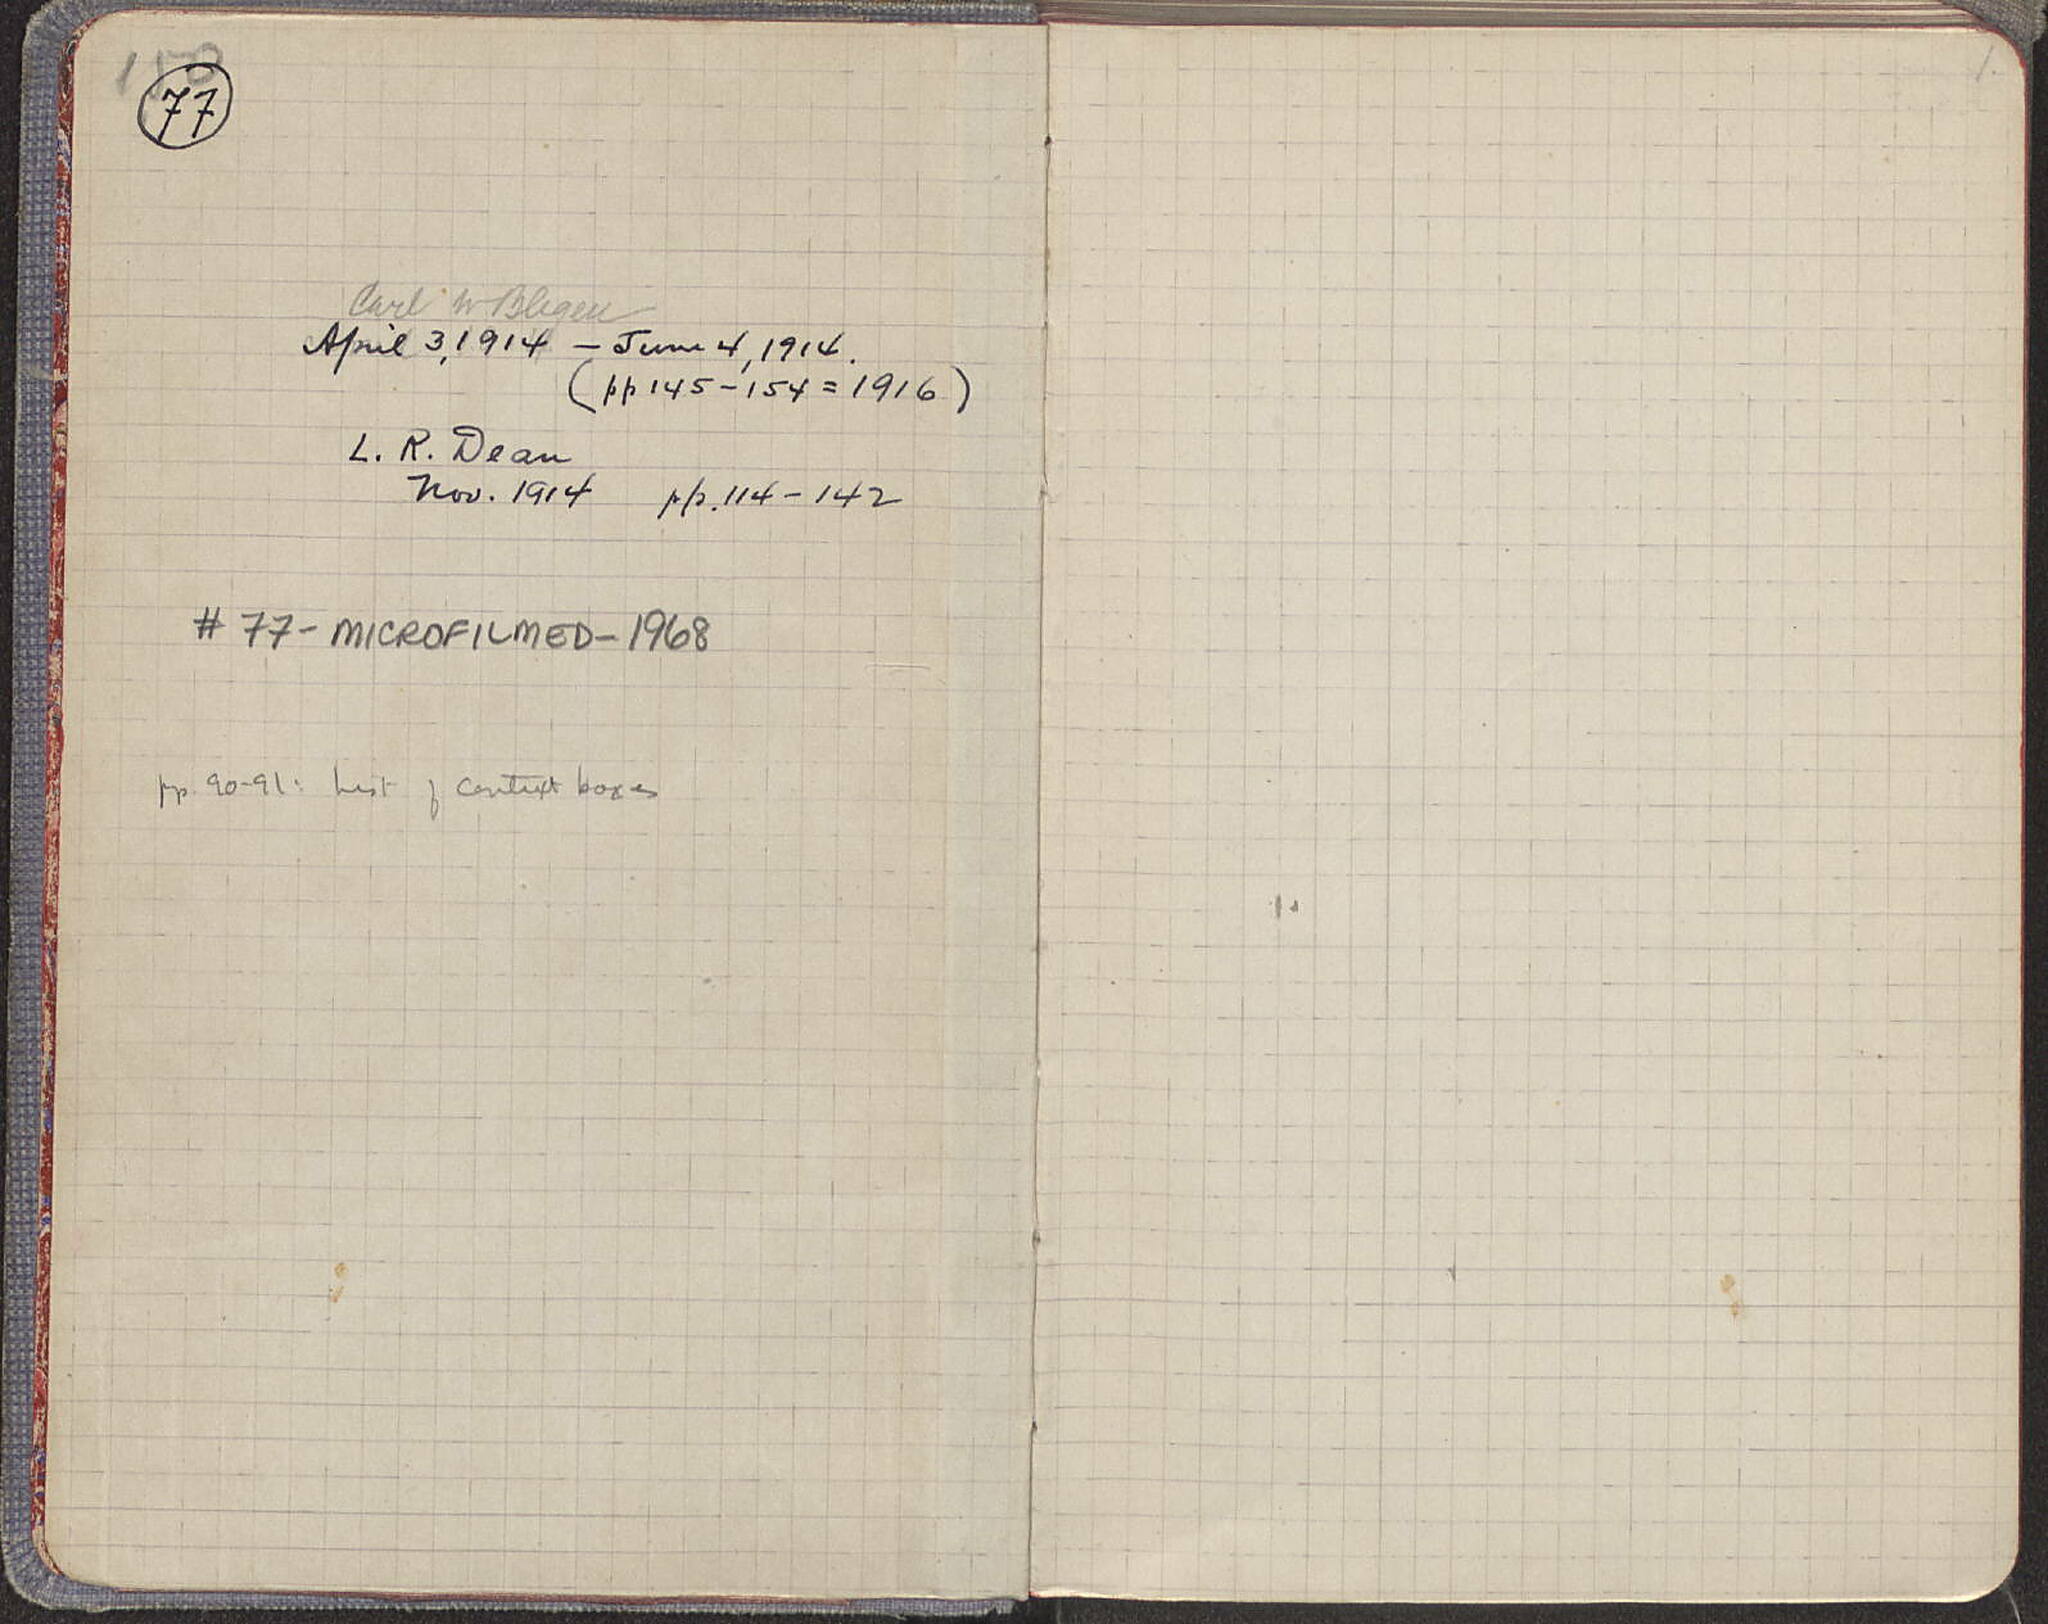 150
77
Carl W Blegen
April 3, 1914 – June 4, 1914.
(pp 145–154 = 1916)
L. R. Dean
Nov. 1914 pp. 114–142
# 77 – MICROFILMED – 1968
pp. 90–91: List of context boxes
1.